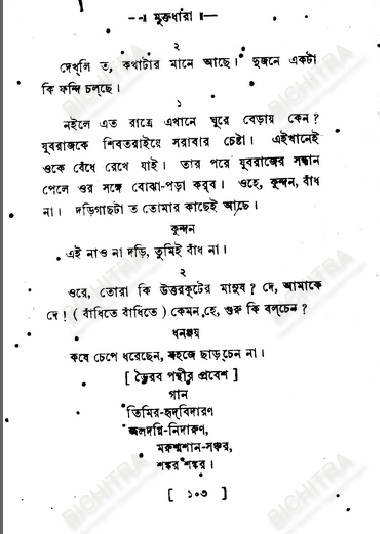 --। মুক্তধারা ।--
২
দেখ্‌লি ত, কথাটার মানে আছে। দুজনে একটা
কি ফন্দি চল্‌ছে।
১
নইলে এত রাত্রে এখানে ঘুরে বেড়ায় কেন?
যুবরাজকে শিবতরাইয়ে সরাবার চেষ্টা। এইখানেই
ওকে বেঁধে রেখে যাই। তার পরে যুবরাজের সন্ধান
পেলে ওর সঙ্গে বোঝা-পড়া করব। ওহে, কুন্দন, বাঁধ
না। দড়িগাছটা ত তোমার কাছেই আছে।
কুন্দন
এই নাও না দড়ি, তুমিই বাঁধ না।
২
ওরে, তোরা কি উত্তরকূটের মানুষ? দে, আমাকে
দে! (বাঁধিতে বাঁধিতে) কেমন হে, গুরু কি বল্‌চেন?
ধনঞ্জয়
কষে চেপে ধরেছেন, সহজে ছাড়্‌চেন না।
[ ভৈরব পন্থীর প্রবেশ ]
গান
তিমির-হৃদবিদারণ
জ্বলদগ্নি-নিদারুণ,
মরুশ্মশান-সঞ্চর,
শঙ্কর শঙ্কর।
[ ১০৩ ]
BICHITRA